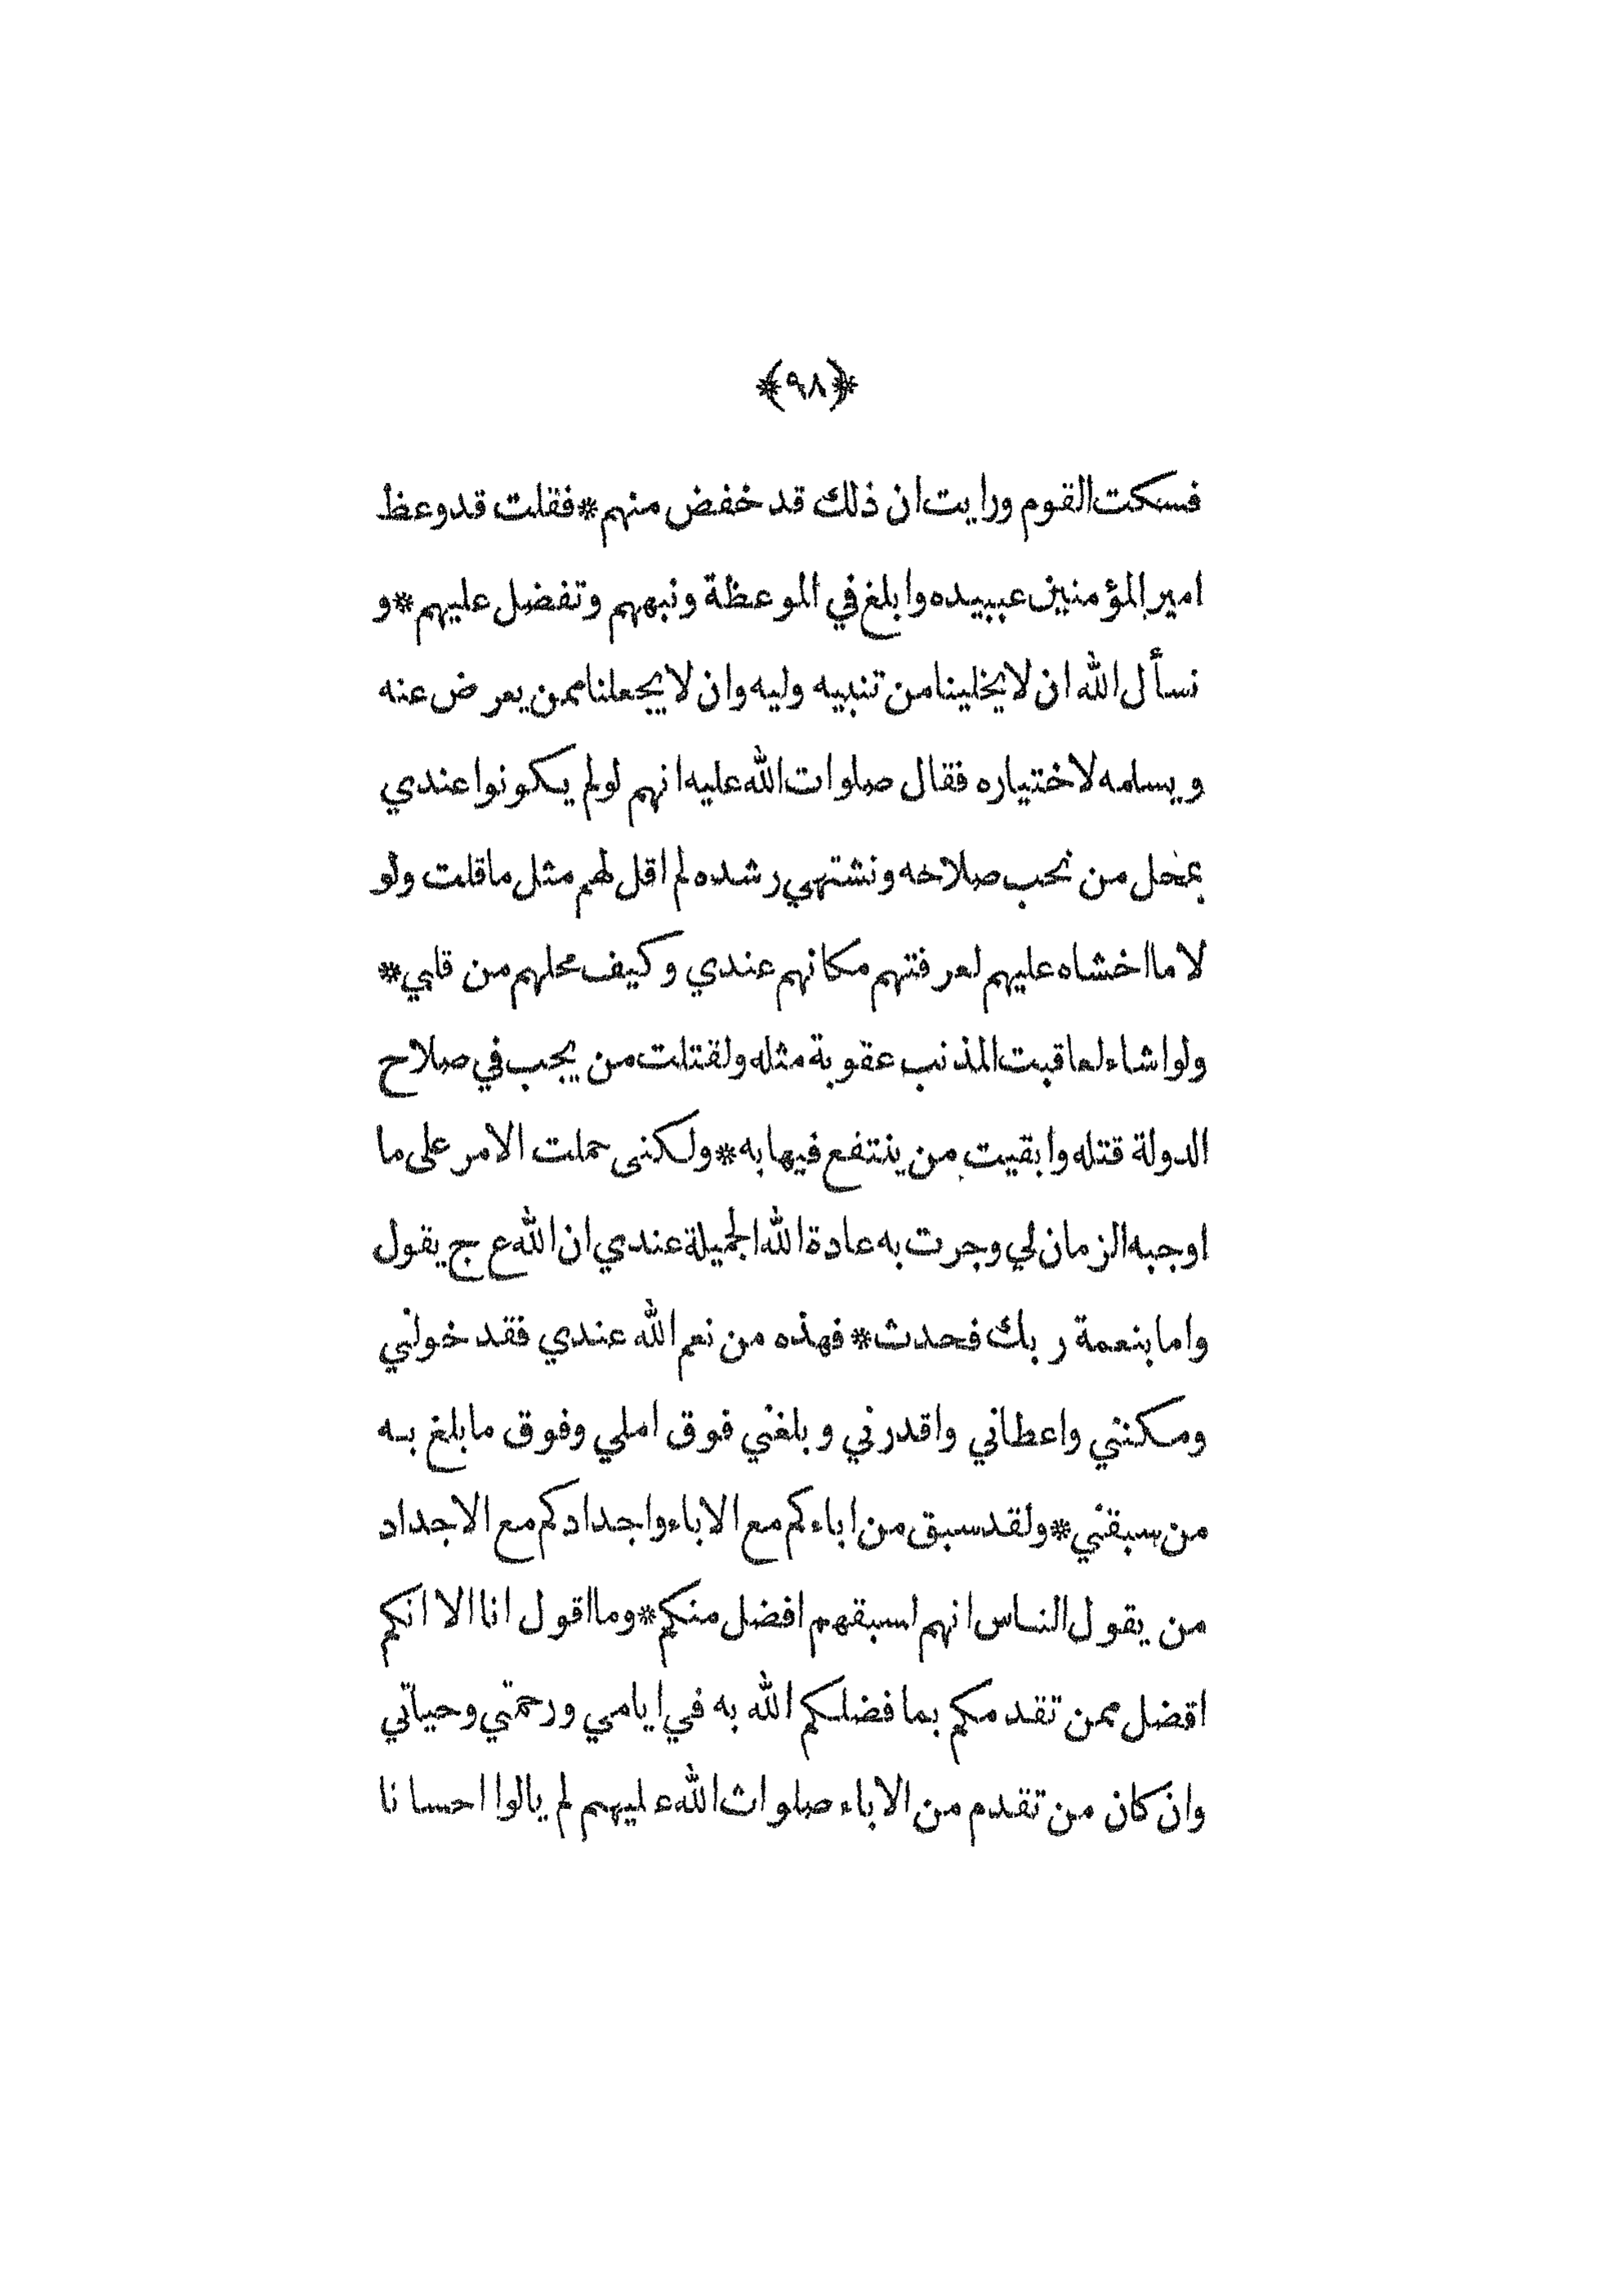 ﴿٩٨﴾
فسكت القوم ورايت ان ذلك قد خفض منهم * فقلت قد وعظ
امير المؤمنين عبيده وابلغ في الموعظة ونبههم وتفضل عليهم * و
نسأل الله ان لا يخلينا من تنبيه وليه وان لا يجعلنا ممن يعرض عنه
ويسلمه لاختياره فقال صلوات الله عليه انهم لو لم يكونوا عندي
بمحل من نحب صلاحه ونشتهي رشده لم اقل لهم مثل ما قلت ولو
لا ما اخشاه عليهم لعرفتهم مكانهم عندي وكيف محلهم من قلبي *
ولو اشاء لعاقبت المذنب عقوبة مثله ولقتلت من يجب في صلاح
الدولة قتله وابقيت من ينتفع فيها به * ولكنى حملت الامر على ما
اوجبه الزمان لي وجرت به عادة الله الجميلة عندي ان الله ع ج يقول
واما بنعمة ربك فحدث * فهذه من نعم الله عندي فقد خولني
ومكنني واعطاني واقدرني وبلغني فوق املي وفوق ما بلغ به
من سبقني * ولقد سبق من اباءكم مع الاباء واجدادكم مع الاجداد
من يقول الناس انهم لسبقهم افضل منكم * وما اقول انا الا انكم
افضل ممن تقدمكم بما فضلكم الله به في ايامي ورحمتي وحياتي
وان كان من تقدم من الاباء صلوات الله عليهم لم يالوا احسانا